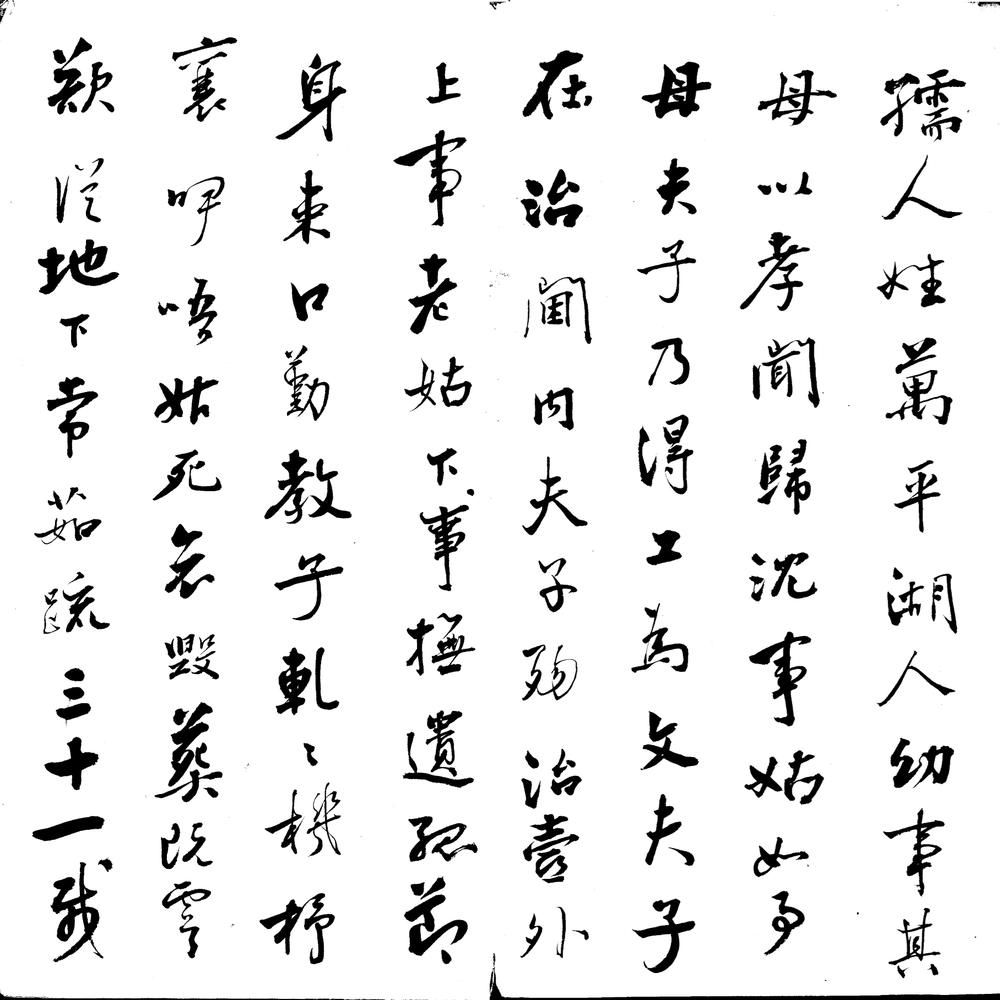 孺人姓萬平湖人幼事其
母以孝聞歸沈事姑如事
母夫子乃得工為文夫子
在治閫内夫子歿治壼外
上事老姑下事撫遺孤節
身束口勤教子軋〻機杼
襄呷唔姑死哀毀葬既窀
歎從地下常茹疏三十一載